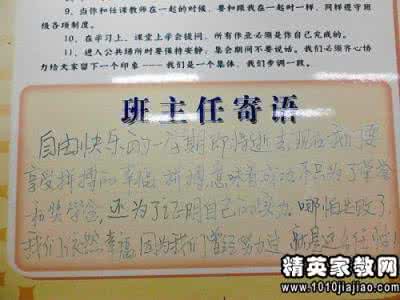 9、当你和任课教师在一起的时候,要和跟我在一起时一样,同样遵守班
级各项制度。
10、在学习上,课堂上学会提问,所有作业必须是你自己完成的。
11、进入公共场所时要保持安静;集会期间不要说话。我们必须齐心协
力给大家留下一个印象——我们是一个集体,我们步调一致。
班主任寄语
自由快乐的一星期即将逝去,现在我们要
享受拼搏的幸福,拼搏意味着成功,不只为了荣誉
和奖学金,还为了证明自己的实力。哪怕失败了,
我们依然幸福,因为我们曾经努力过,
精英家教网
www.1010jiajiao.com